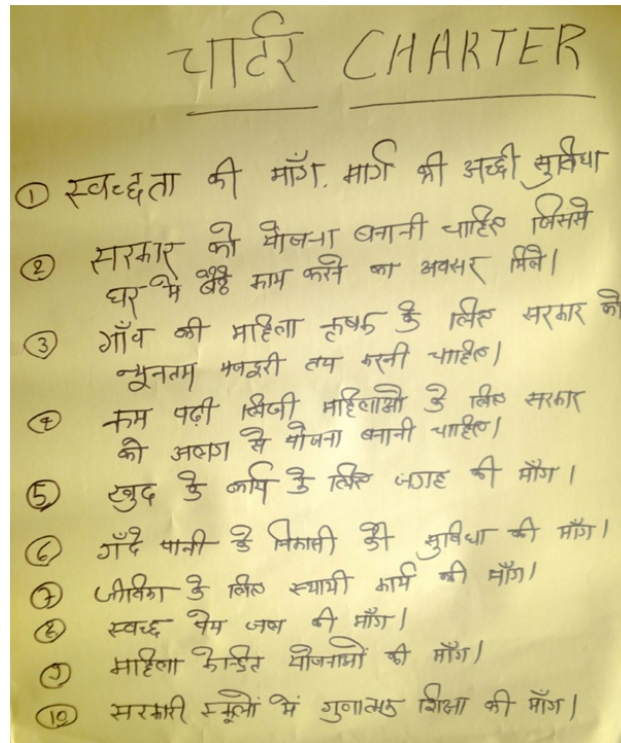 चार्टर CHARTER
① स्वच्छता की माँग, मार्ग की अच्छी सुविधा
② सरकार को योजना बनानी चाहिए जिससे
घर मे बैठे काम करने का अवसर मिले।
③ गाँव की महिला कृषक के लिए सरकार को
न्यूनतम मजदूरी तय करनी चाहिए।
④ कम पढ़ी लिखी महिलाओ के लिए सरकार
को अलग से योजना बनानी चाहिए।
⑤ खुद के कार्य के लिए जगह की माँग।
⑥ गँदे पानी के निकासी की सुविधा की माँग।
⑦ जीविका के लिए स्थायी कार्य की माँग।
⑧ स्वच्छ पेय जल की माँग।
⑨ महिला केन्द्रित योजनाओं की माँग।
⑩ सरकारी स्कूलों में गुणात्मक शिक्षा की माँग।